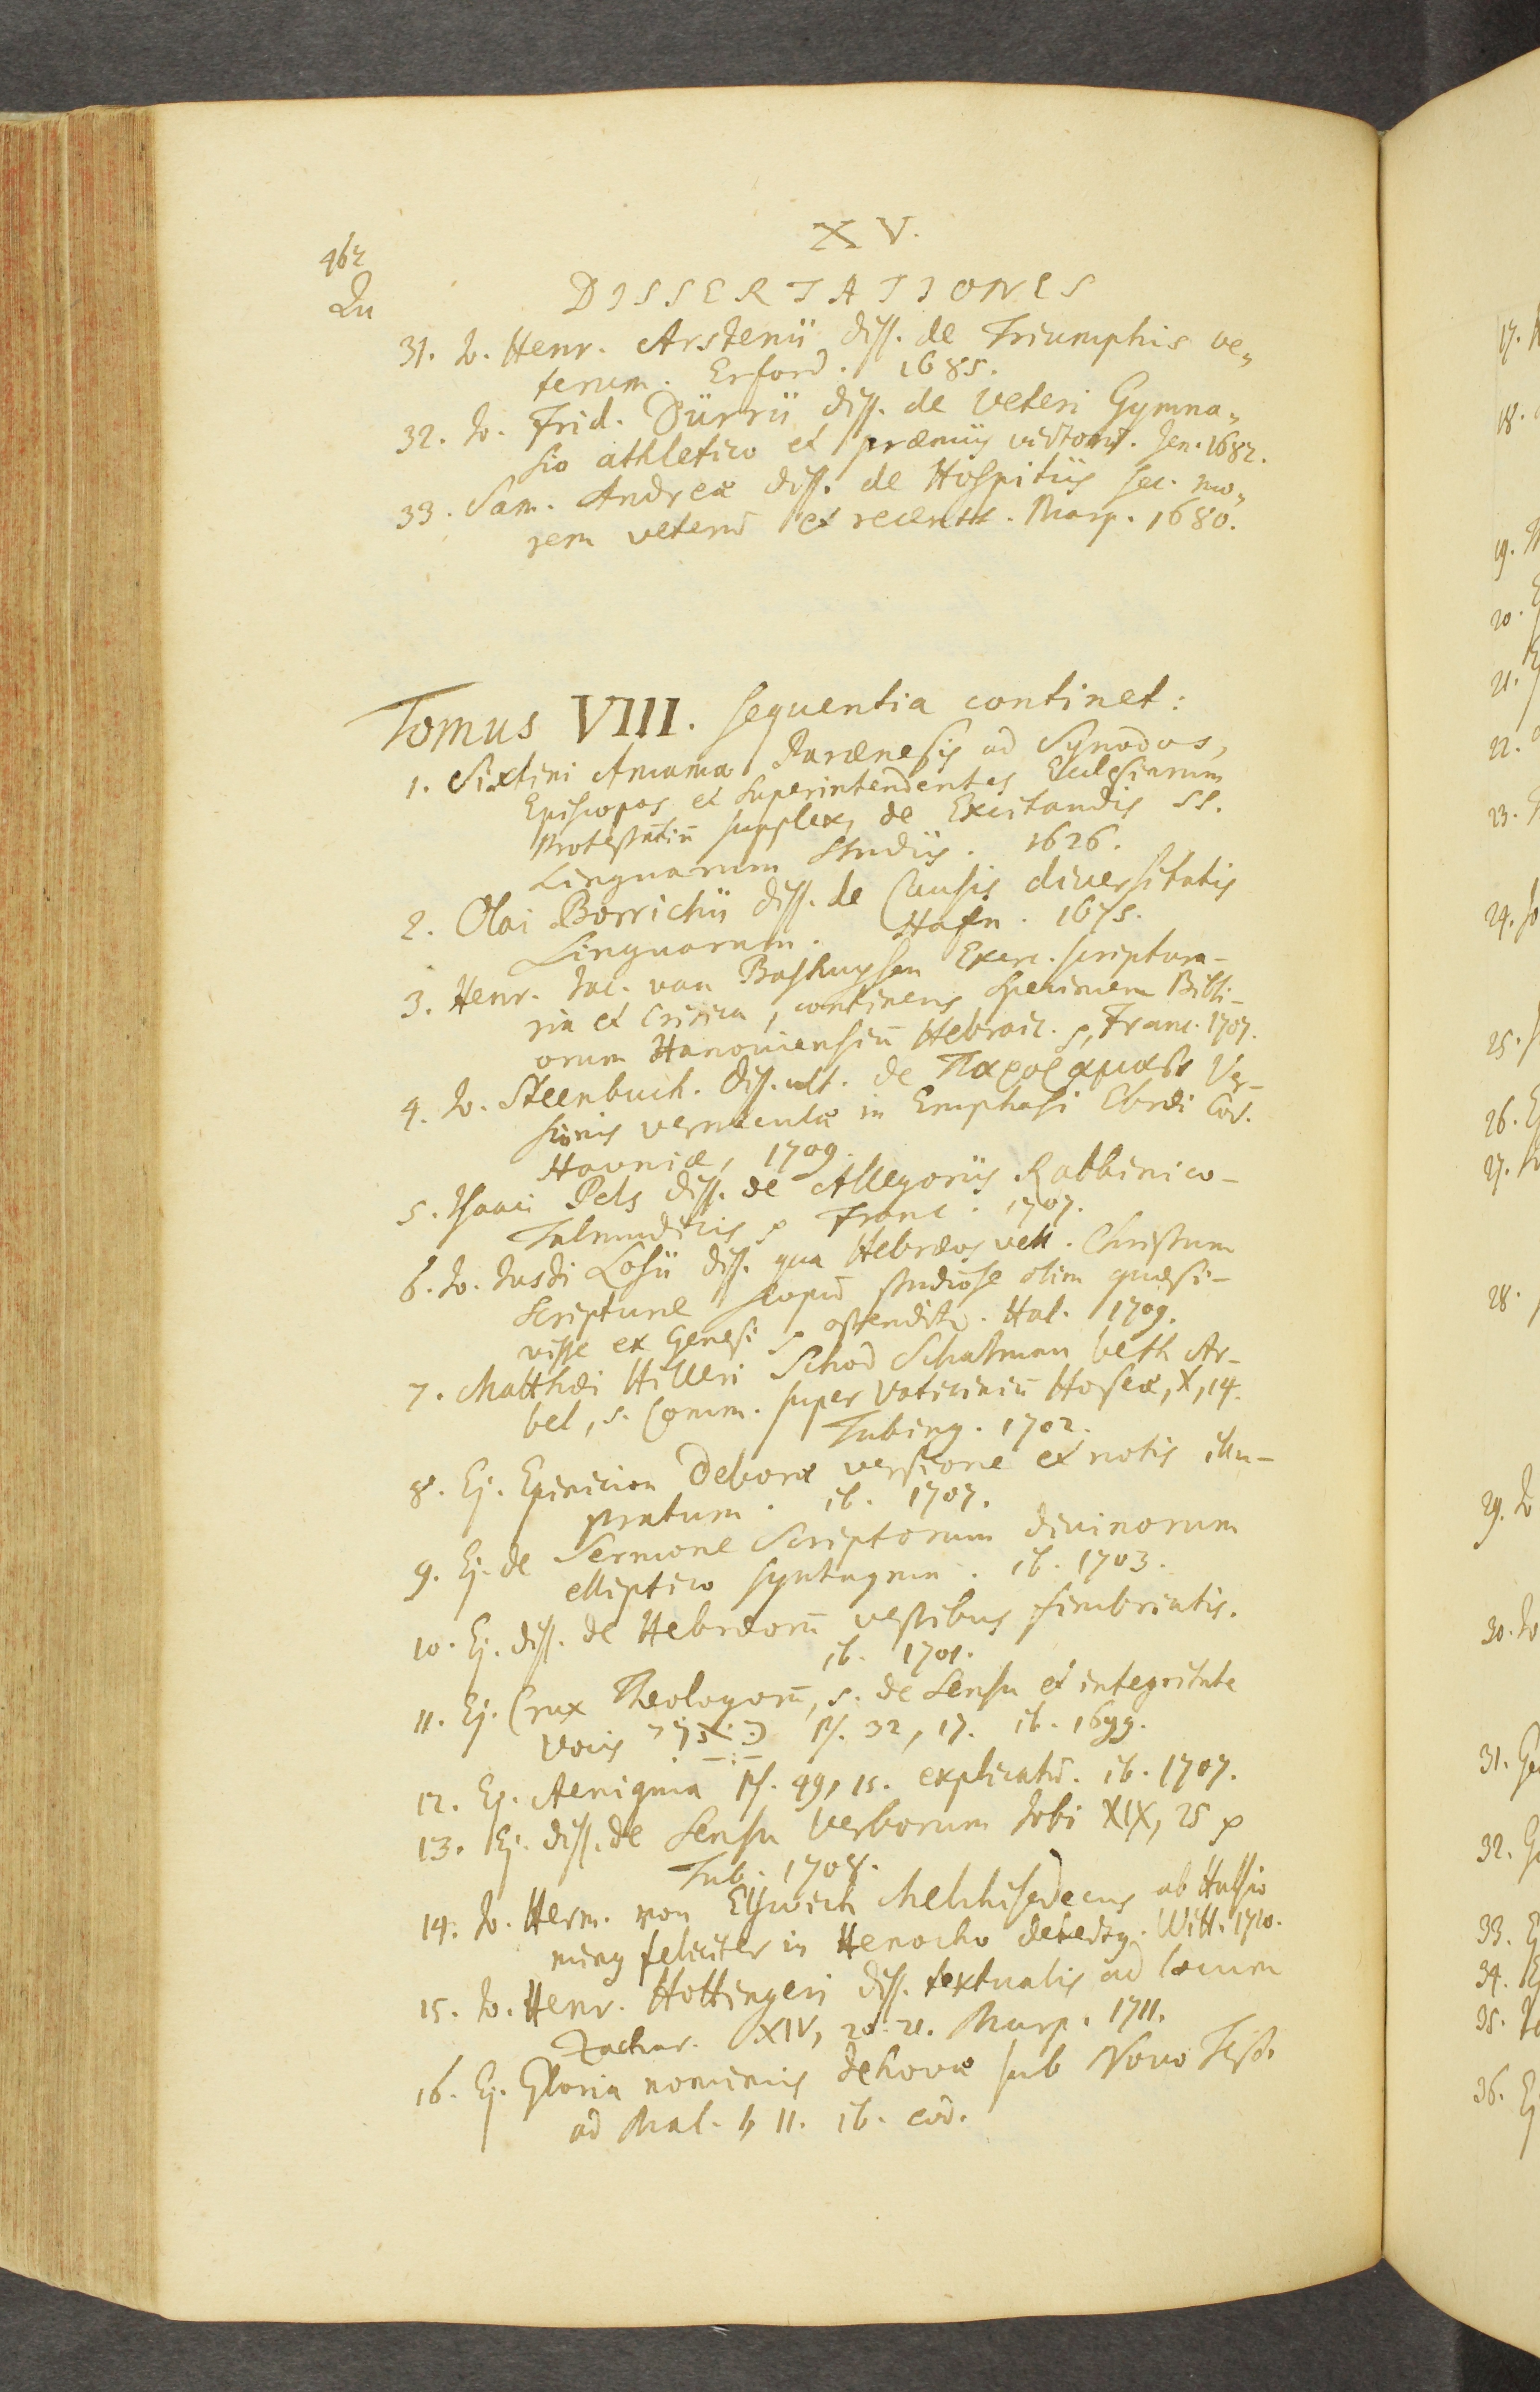 XV.
462
Qu
DISSERTATIONES
31. Jo. Henr. Arstenii diss. de Triumphis ve„
terum. Erford. 1685.
32. Jo. Frid. Dürrii diss. de veteri Gymna„
sio athletico et præmiis victorū. Jen. 1682.
33. Sam. Andreæ diss. de Hospitiis sec. mo„
rem veterū et recentt. Marp. 1680.
Tomus VIII. sequentia continet:
1. Sixtini Amama Parænesis ad Synodos,
Episcopos et Superintendentes Ecclesiarum
Protestātiū supplex, de Excitandis SS.
Linguarum Studiis. 1626.
2. Olai Borrichii diss. de Causis diversitatis
Linguarum. Hafn. 1675.
3. Henr. Jac. van Bashuysen Exerc. scriptura-
ria et Critica, continens Specimen Bibli-
orum Hanoviensiū Hebraic. p, Franc. 1707.
4. Jo. Steenbuch. diss. ult. de Ver-
sionis vernaculæ in Emphasi Ebræi Cod.
Havniæ, 1709.
5. Isaaci Pels diss. de Allegoriis Rabbinico-
Talmudicis p Franc. 1707.
6. Jo. Justi Losii diss. qua Hebræos vett. Christum
Scripturæ scopū studiose olim quæsi-
visse ex Genesi p ostenditr. Hal. 1709.
7. Matthæi Hilleri Schod Schalman beth Ar-
bel, s. Comm. super Vaticiniū Hoseæ, X, 14.
Tubing. 1702.
8. Ej. Epinicion Deboræ versione et notis illu-
stratum. ib. 1707.
9. Ej. de Sermone Scriptorum divinorum
elliptico syntagma. ib. 1703.
10. Ej. diss. de Hebræorū vestibus fimbriatis.
ib. 1701.
11. Ej. Crux Theologorū, s. de Sensu et integritate
Vocis כָּאֲרִי Ps. 32, 17. ib. 1699.
12. Ej. Aenigma Ps. 49, 15. explicatū. ib. 1707.
13. Ej. diss. de Sensu Verborum Jobi XIX, 25 p
Tub. 1708.
14. Jo. Herm. von Elswich Melchisedecus ab Hulsio
minus feliciter in Henocho detectus. Witt. 1710.
15. Jo. Henr. Hottingeri diss. textualis ad locum
Zachar. XIV, 20. 21. Marp. 1711.
16. Ej. Gloria nominis Jehovæ sub Novo Test.
ad Mal. I, 11. ib. eod.
17.
18.
19.
20.
21.
22.
23.
24. Jo
25.
26.
27.
28.
29. Jo
30. Jo
31. Ge
32.
33. E
34. Ej
35.
36. Ej